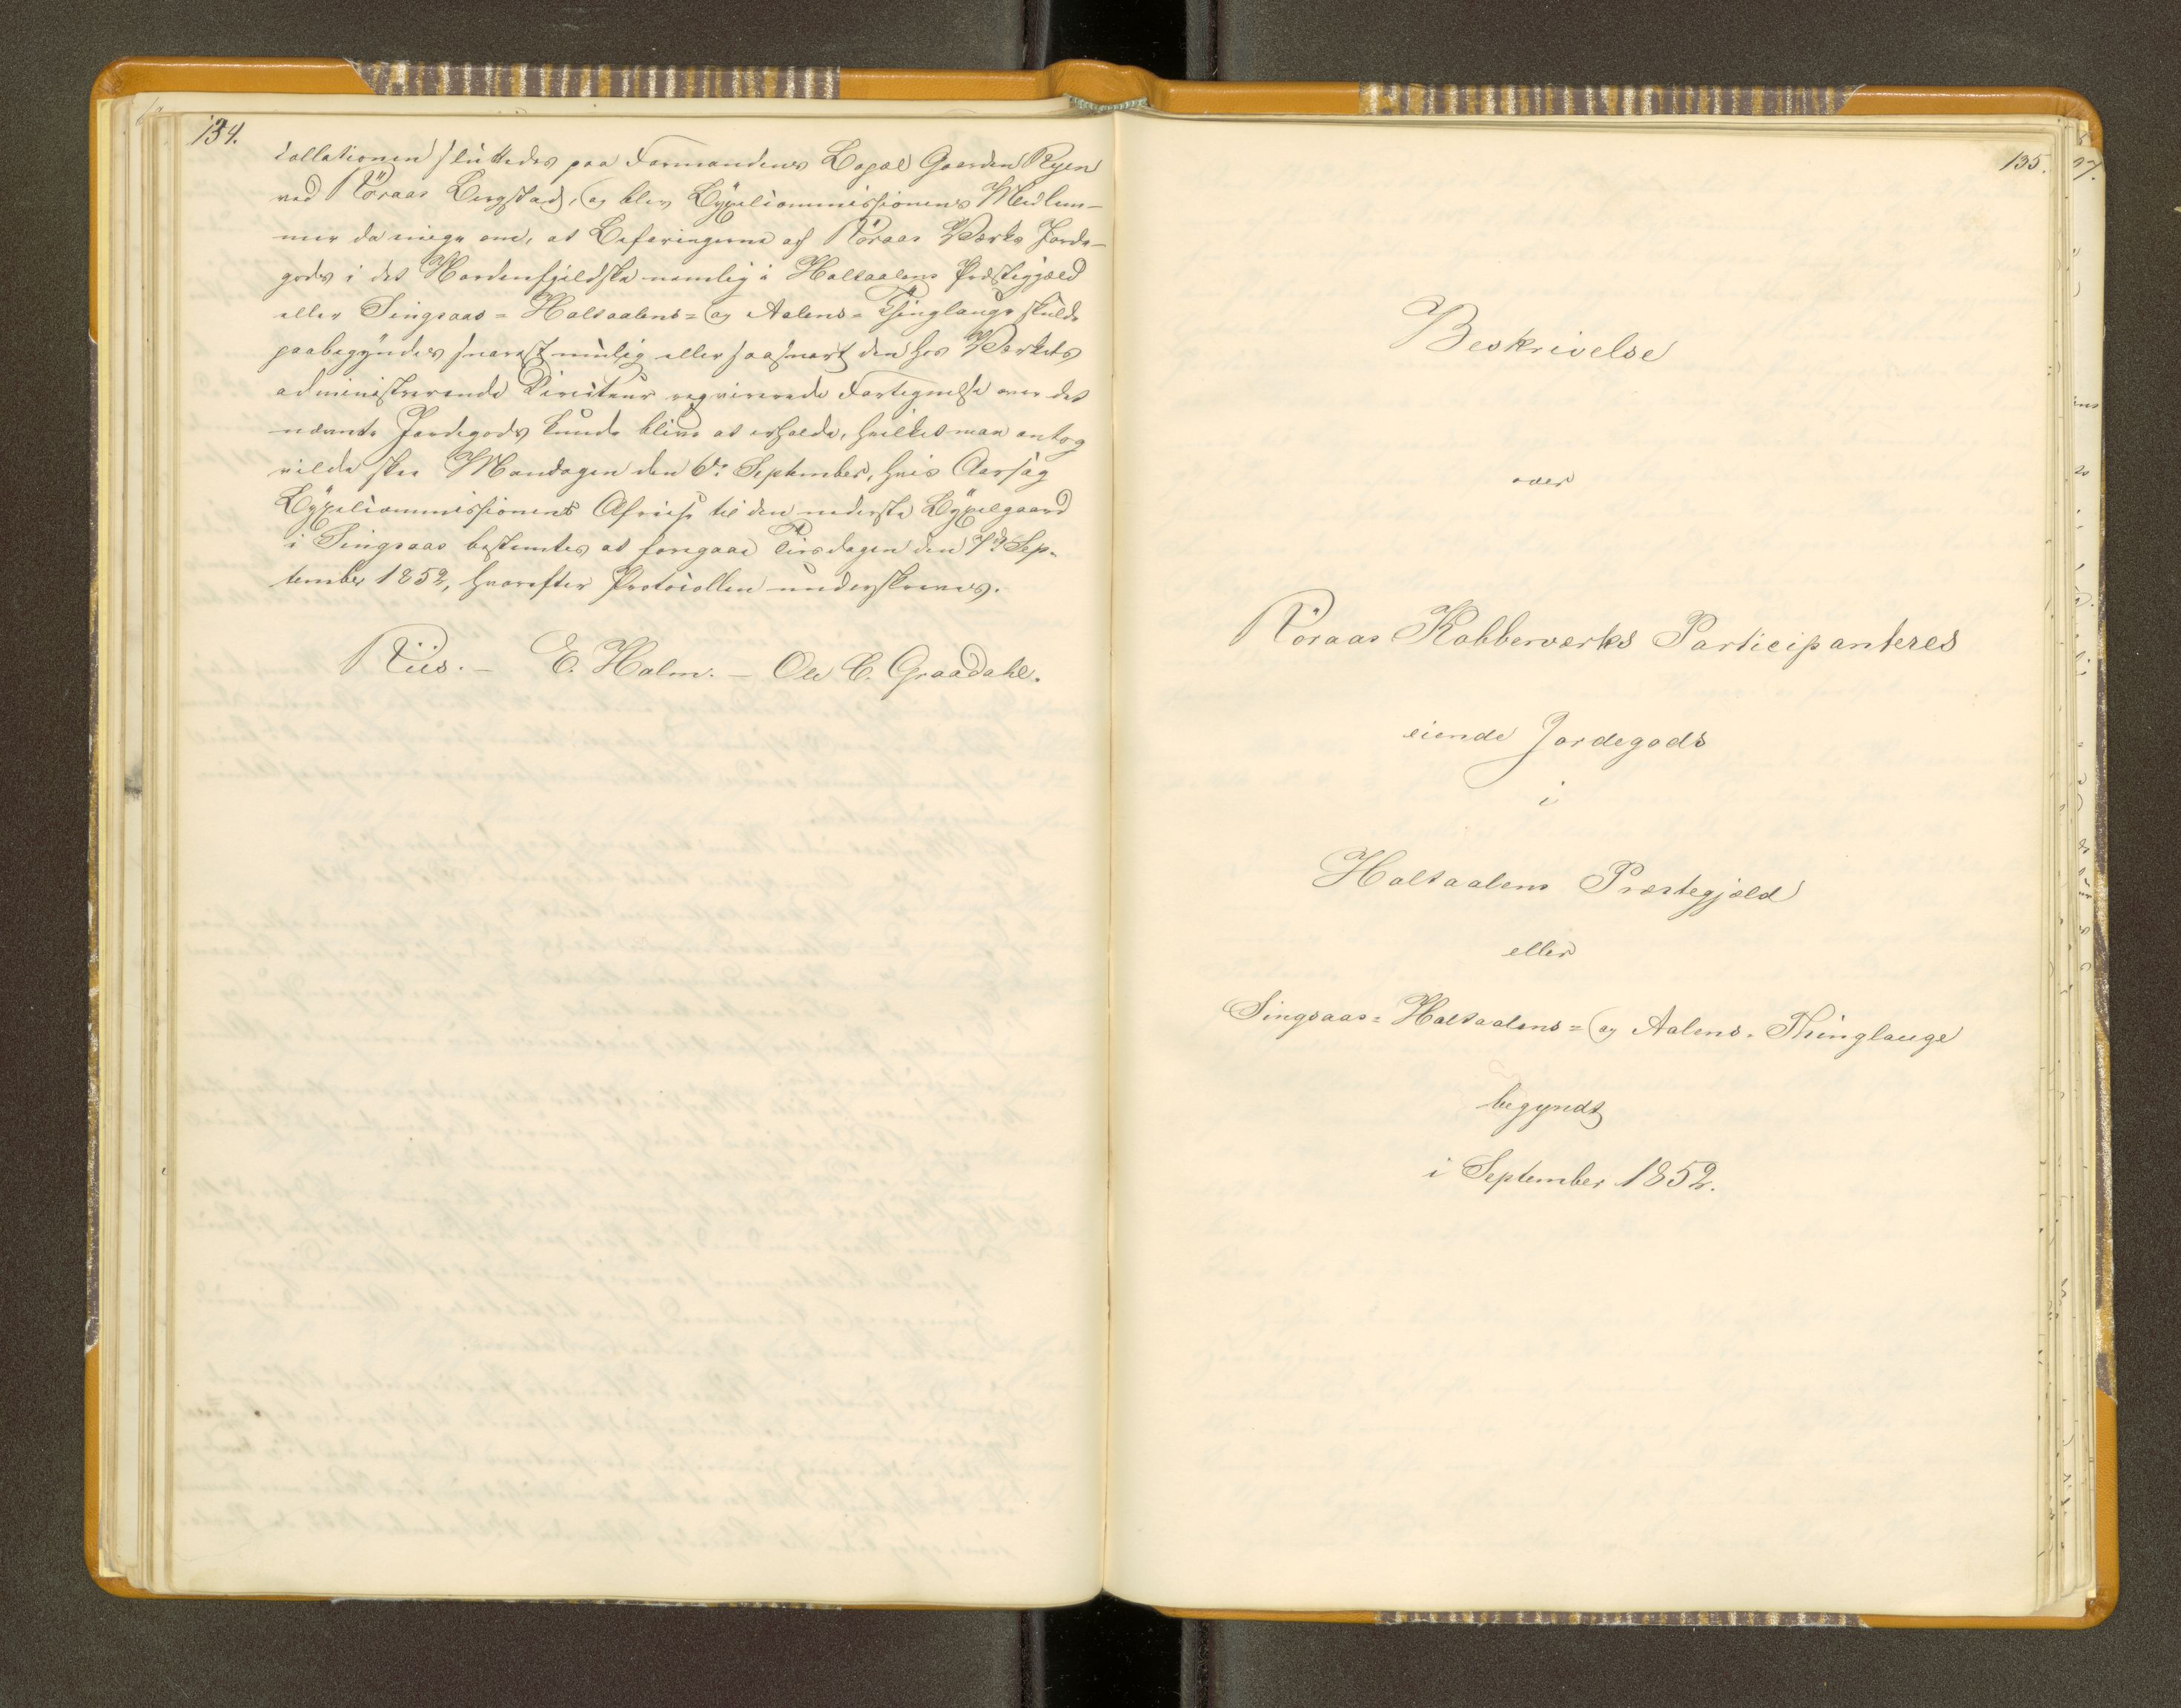 134.
collationen sluttedes paa Formandens Bopæl Gaarden Ryen
ved Röraas Bergstad, og blev Bÿxelcommissionens Medlem-
mer da enige om, at Befaringerne af Röraas Værks Jorde-
gods i det Nordenfjeldske nemlig i Holtaalens Præstegjæld
eller Singsaas= Holtaalens= og Aalens= Thinglauge skulde
paabegÿndes snarest mulig eller saasnart den hos Værkets
administrerende Directeur reqvirerede Fortegnelse over det
nævnte Jordegods kunde blive at erholde, hvilket man antog
vilde skee Mandagen den 6te September, hvis Aarsag
Bÿxelcommissionens Afreise til den nederste Bÿxelgaard
i Singsaas bestemtes at foregaae Tirsdagen den 7de Sep-
tember 1852, hvorefter Protocollen underskreves.
Riis. – E. Holm. – Ole C. Graadahl.
135.
Beskrivelse
over
Röraas Kobberværks Participanteres
eiende Jordegods
i
Holtaalens Præstegjæld
eller
Singsaas= Holtaalens= og Aalens= Thinglauge
begyndt
i September 1852.